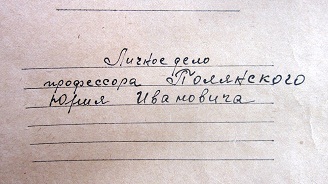 Личное дело
профессора Полянского
Юрия Ивановича